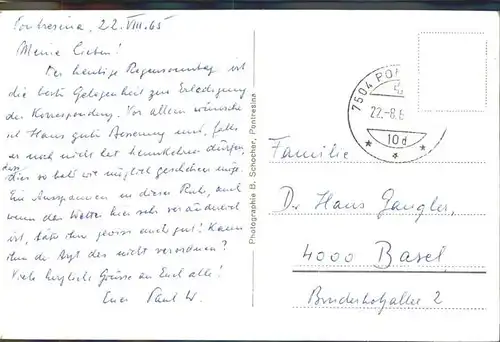 Pontresina, 22.VIII.65
Meine Lieben!
Der heutige Regensonntag ist
die beste Gelegenheit zur Erledigung
der Korrespondenz. Vor allem wünsche
ich Hans gute Besserung und, falls
er noch nicht hat heimkehren dürfen,
dass dies so bald wie möglich geschehen möge.
Ein Ausspannen in dieser Ruhe, auch
wenn das Wetter hier sehr veränderlich
ist, täte ihm gewiss auch gut! Kann
ihm der Arzt das nicht verordnen?
Viele herzliche Grüsse an Euch alle!
Euer Paul W.
Photographie B. Schocher, Pontresina
7504 PO
22.-8.6
10d
Familie
Dr Hans Gangler,
4000 Basel
Bruderholzallee 2